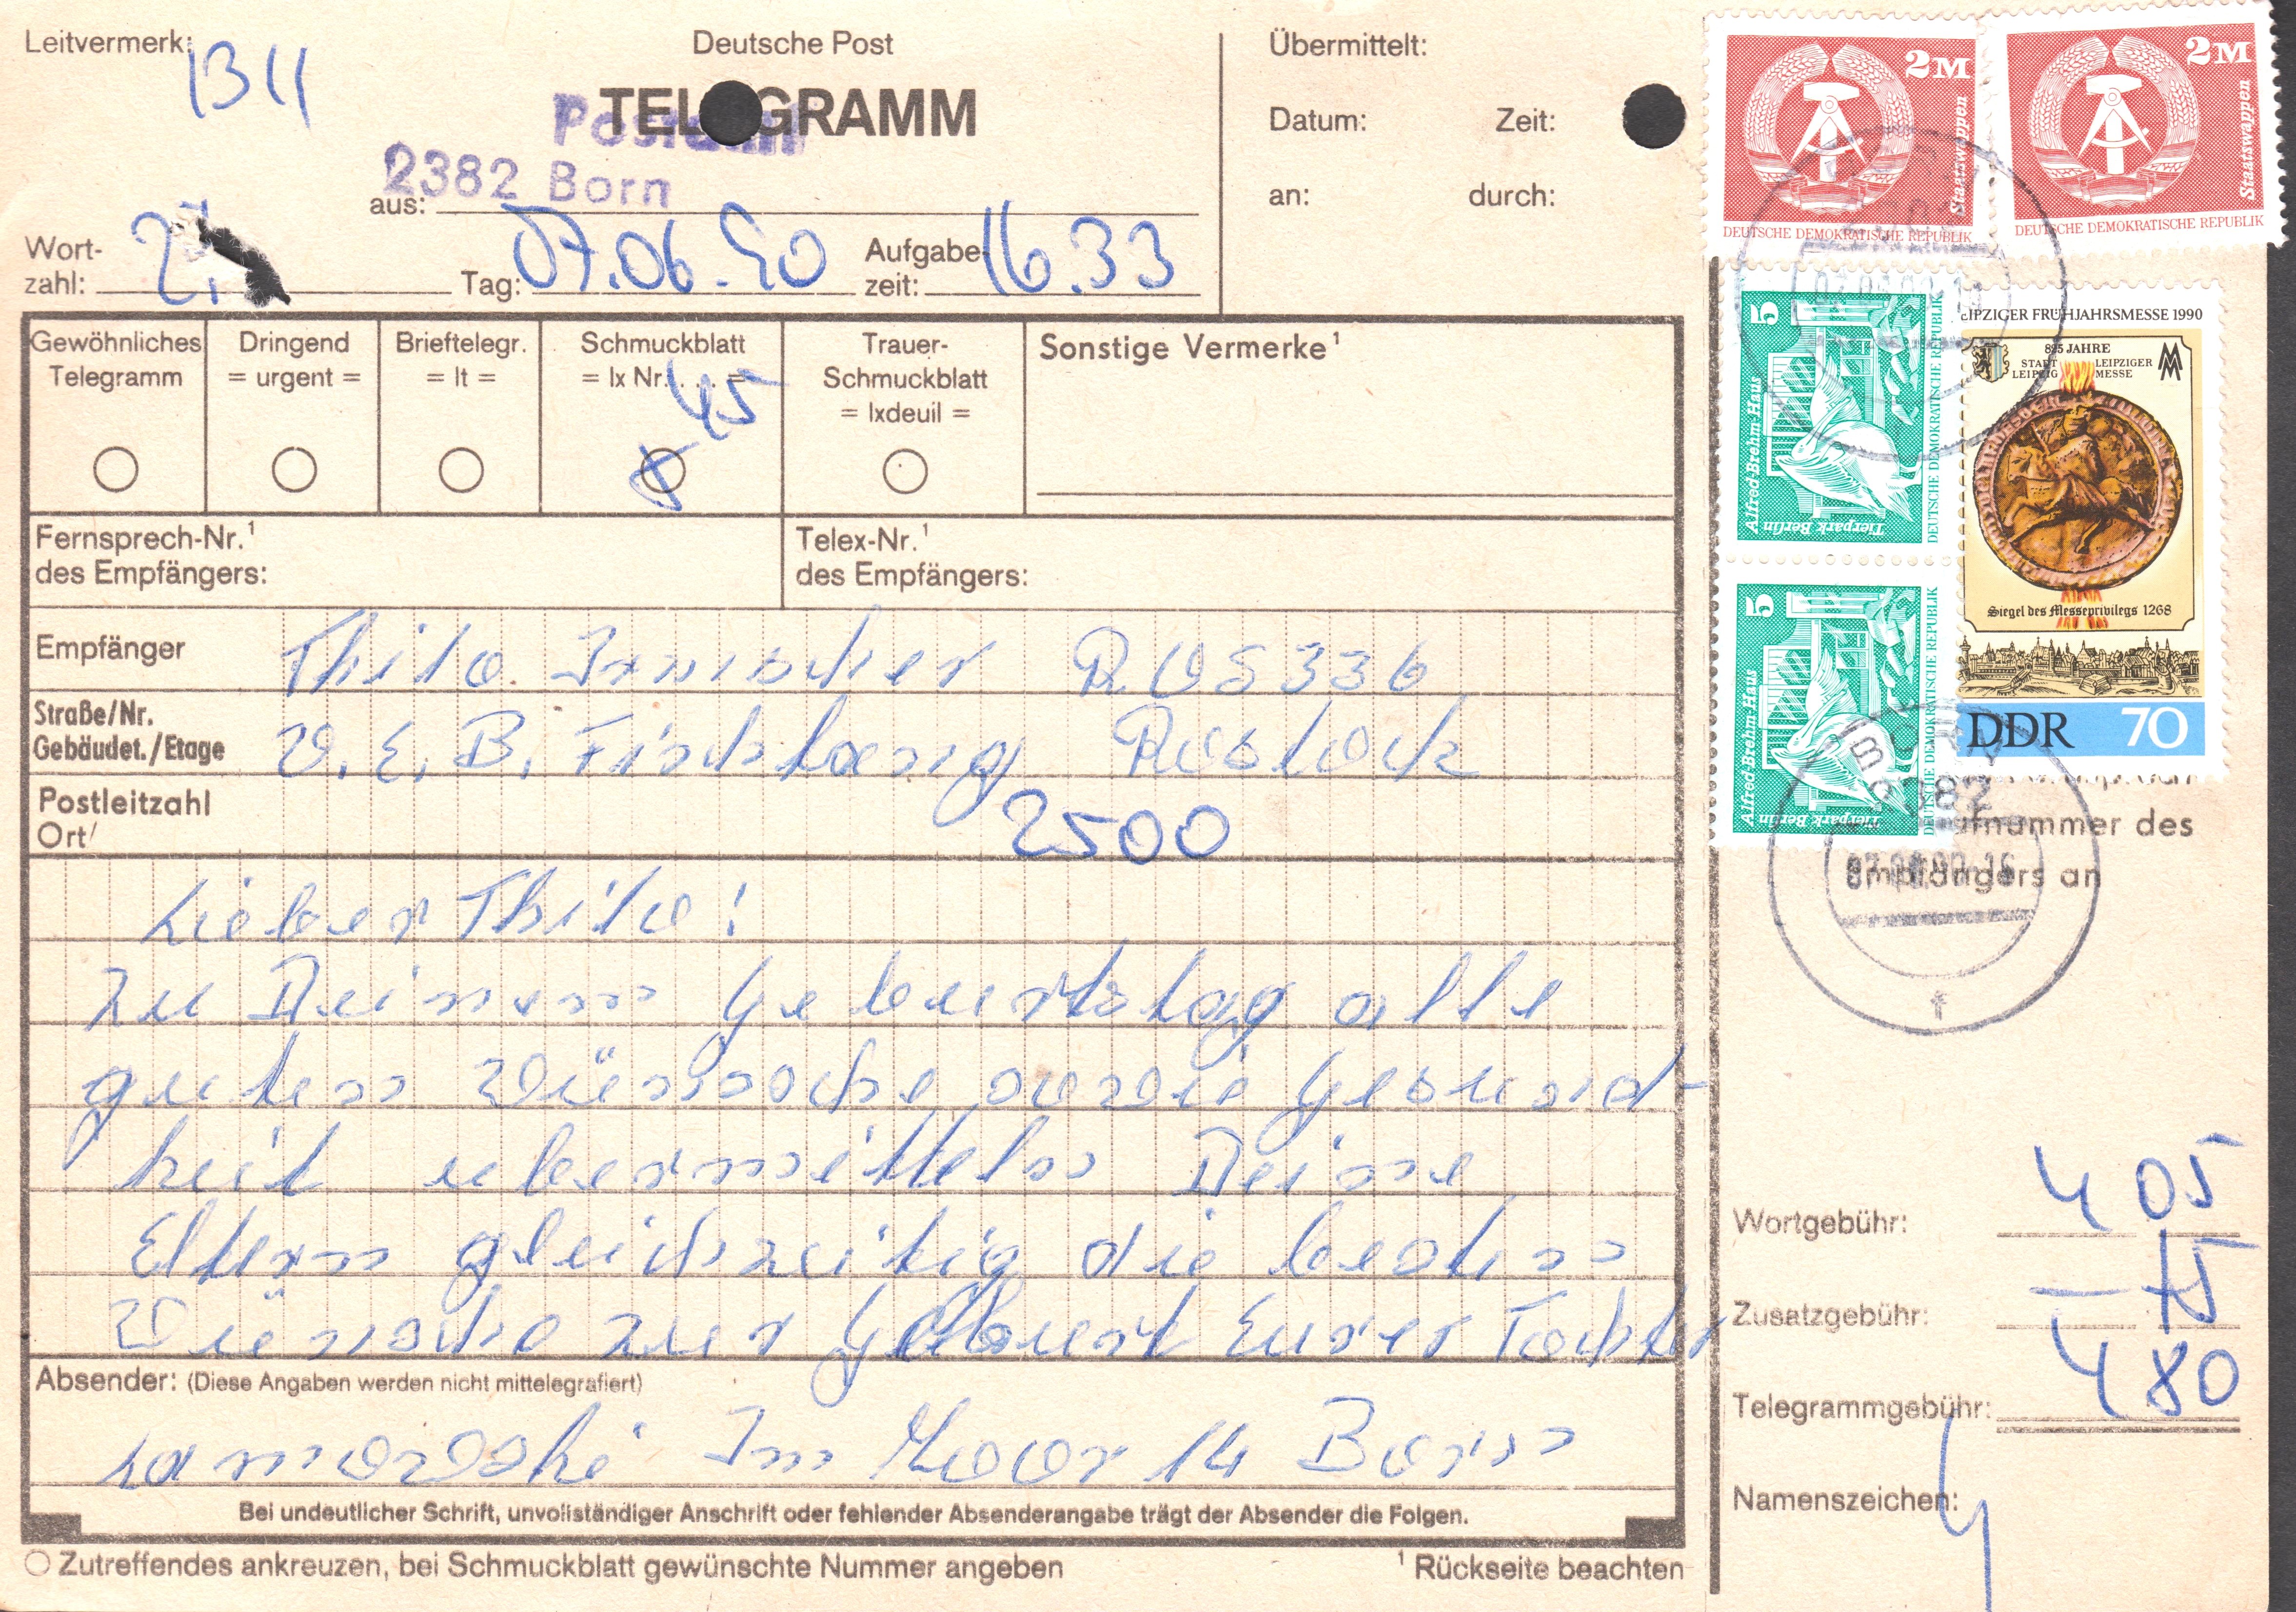 Leitvermerk:
1311
Deutsche Post
TELEGRAMM
Postamt
2382 Born
aus:
Wort-
zahl: 27
Tag: 07.06.90
Aufgabe-
zeit: 16.33
Übermittelt:
Datum: Zeit:
an: durch:
Gewöhnliches
Telegramm
Dringend
= urgent =
Brieftelegr.
= lt =
Schmuckblatt
= lx Nr. . . . =
45
Trauer-
Schmuckblatt
= lxdeuil =
Sonstige Vermerke¹
Fernsprech-Nr.¹
des Empfängers:
Telex-Nr.¹
des Empfängers:
Empfänger
Thilo ROS 336
Straße/Nr.
Gebäudet./Etage
V. E. B. Fischfang Rostock
Postleitzahl
Ort
2500
Lieber Thilo!
Zu Deinem Geburtstag alle
guten Wünsche sowie Gesund-
heit übermitteln Deine
Eltern gleichzeitig die besten
Wünsche zur Geburt Eurer Tochter
Absender: (Diese Angaben werden nicht mittelegrafiert)
Im Moor 14 Born
Bei undeutlicher Schrift, unvollständiger Anschrift oder fehlender Absenderangabe trägt der Absender die Folgen.
Zutreffendes ankreuzen, bei Schmuckblatt gewünschte Nummer angeben
¹ Rückseite beachten
2M
Staatswappen
DEUTSCHE DEMOKRATISCHE REPUBLIK
2M
Staatswappen
DEUTSCHE DEMOKRATISCHE REPUBLIK
5
Alfred-Brehm-Haus
Tierpark Berlin
DEUTSCHE DEMOKRATISCHE REPUBLIK
5
Alfred-Brehm-Haus
Tierpark Berlin
DEUTSCHE DEMOKRATISCHE REPUBLIK
LEIPZIGER FRÜHJAHRSMESSE 1990
825 JAHRE
STADT LEIPZIGER
LEIPZIG MESSE
MM
Siegel des Messeprivilegs 1268
DDR 70
BORN
2382
ufnummer des
Empfängers an
f
Wortgebühr: 4 05
Zusatzgebühr: — 75
Telegrammgebühr: 4 80
Namenszeichen: